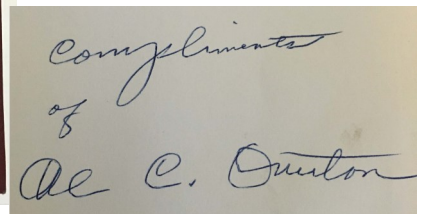 Compliments
of
Al C. Overton